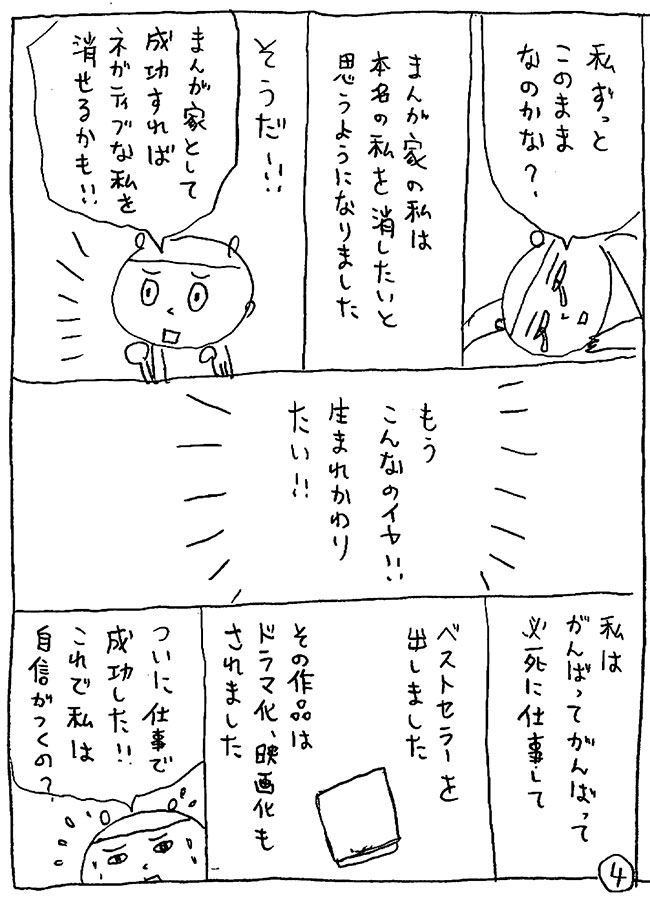 私ずっと
このまま
なのかな?
まんが家の私は
本名の私を消したいと
思うようになりました
そうだ!!
まんが家として
成功すれば
ネガティブな私を
消せるかも!!
もう
こんなのイヤ!!
生まれかわり
たい!!
私は
がんばってがんばって
必死に仕事して
ベストセラーを
出しました
その作品は
ドラマ化、映画化も
されました
ついに仕事で
成功した!!
これで私は
自信がつくの?
4